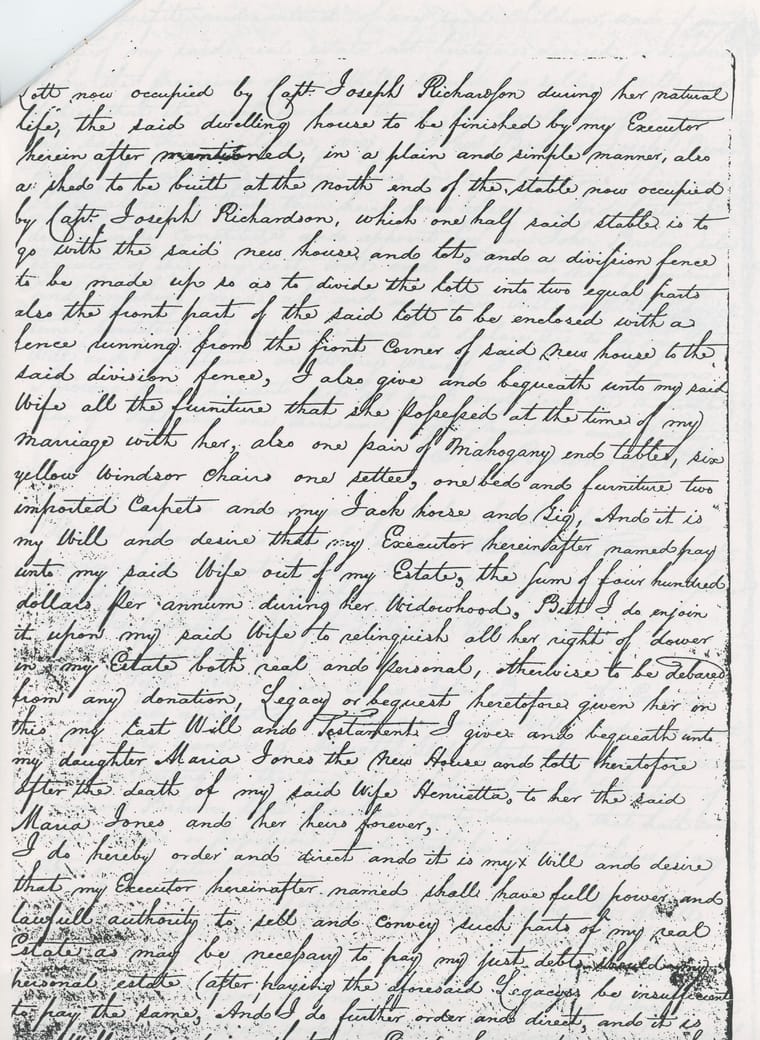 Lott now occupied by Capt. Joseph Richardson during her natural
life, the said dwelling house to be finished by my Executor
herein after mentioned, in a plain and simple manner, also
a shed to be built at the north end of the stable now occupied
by Capt. Joseph Richardson, which one half said stable is to
go with the said new house and lot, and a division fence
to be made up so as to divide the lott into two equal parts
also the front part of the said lott to be enclosed with a
fence running from the front Corner of said New house to the
said division fence, I also give and bequeath unto my said
Wife all the furniture that she possessed at the time of my
Marriage with her, also one pair of Mahogany end tables, six
yellow Windsor Chairs one settee, one bed and furniture two
imported Carpets and my Jack horse and Gig, And it is
my Will and desire that my Executor hereinafter named pay
unto my said Wife out of my Estate, the sum of four hundred
dollars per annum during her Widowhood, But I do enjoin
it upon my said Wife to relinquish all her right of dower
in my Estate both real and personal, otherwise to be debared
from any donation, Legacy or bequest heretofore given her in
this my last Will and Testament I give and bequeath unto
my daughter Maria Jones the New House and lott heretofore
after the death of my said Wife Henrietta, to her the said
Maria Jones and her heirs forever,
I do hereby order and direct and it is my x Will and desire
that my Executor hereinafter named shall have full power and
lawfull authority to sell and convey such parts of my real
Estate as may be necessary to pay my just debts should my
personal estate (after paying the aforesaid Legacys be insufficient
to pay the same, And I do further order and direct, and it is